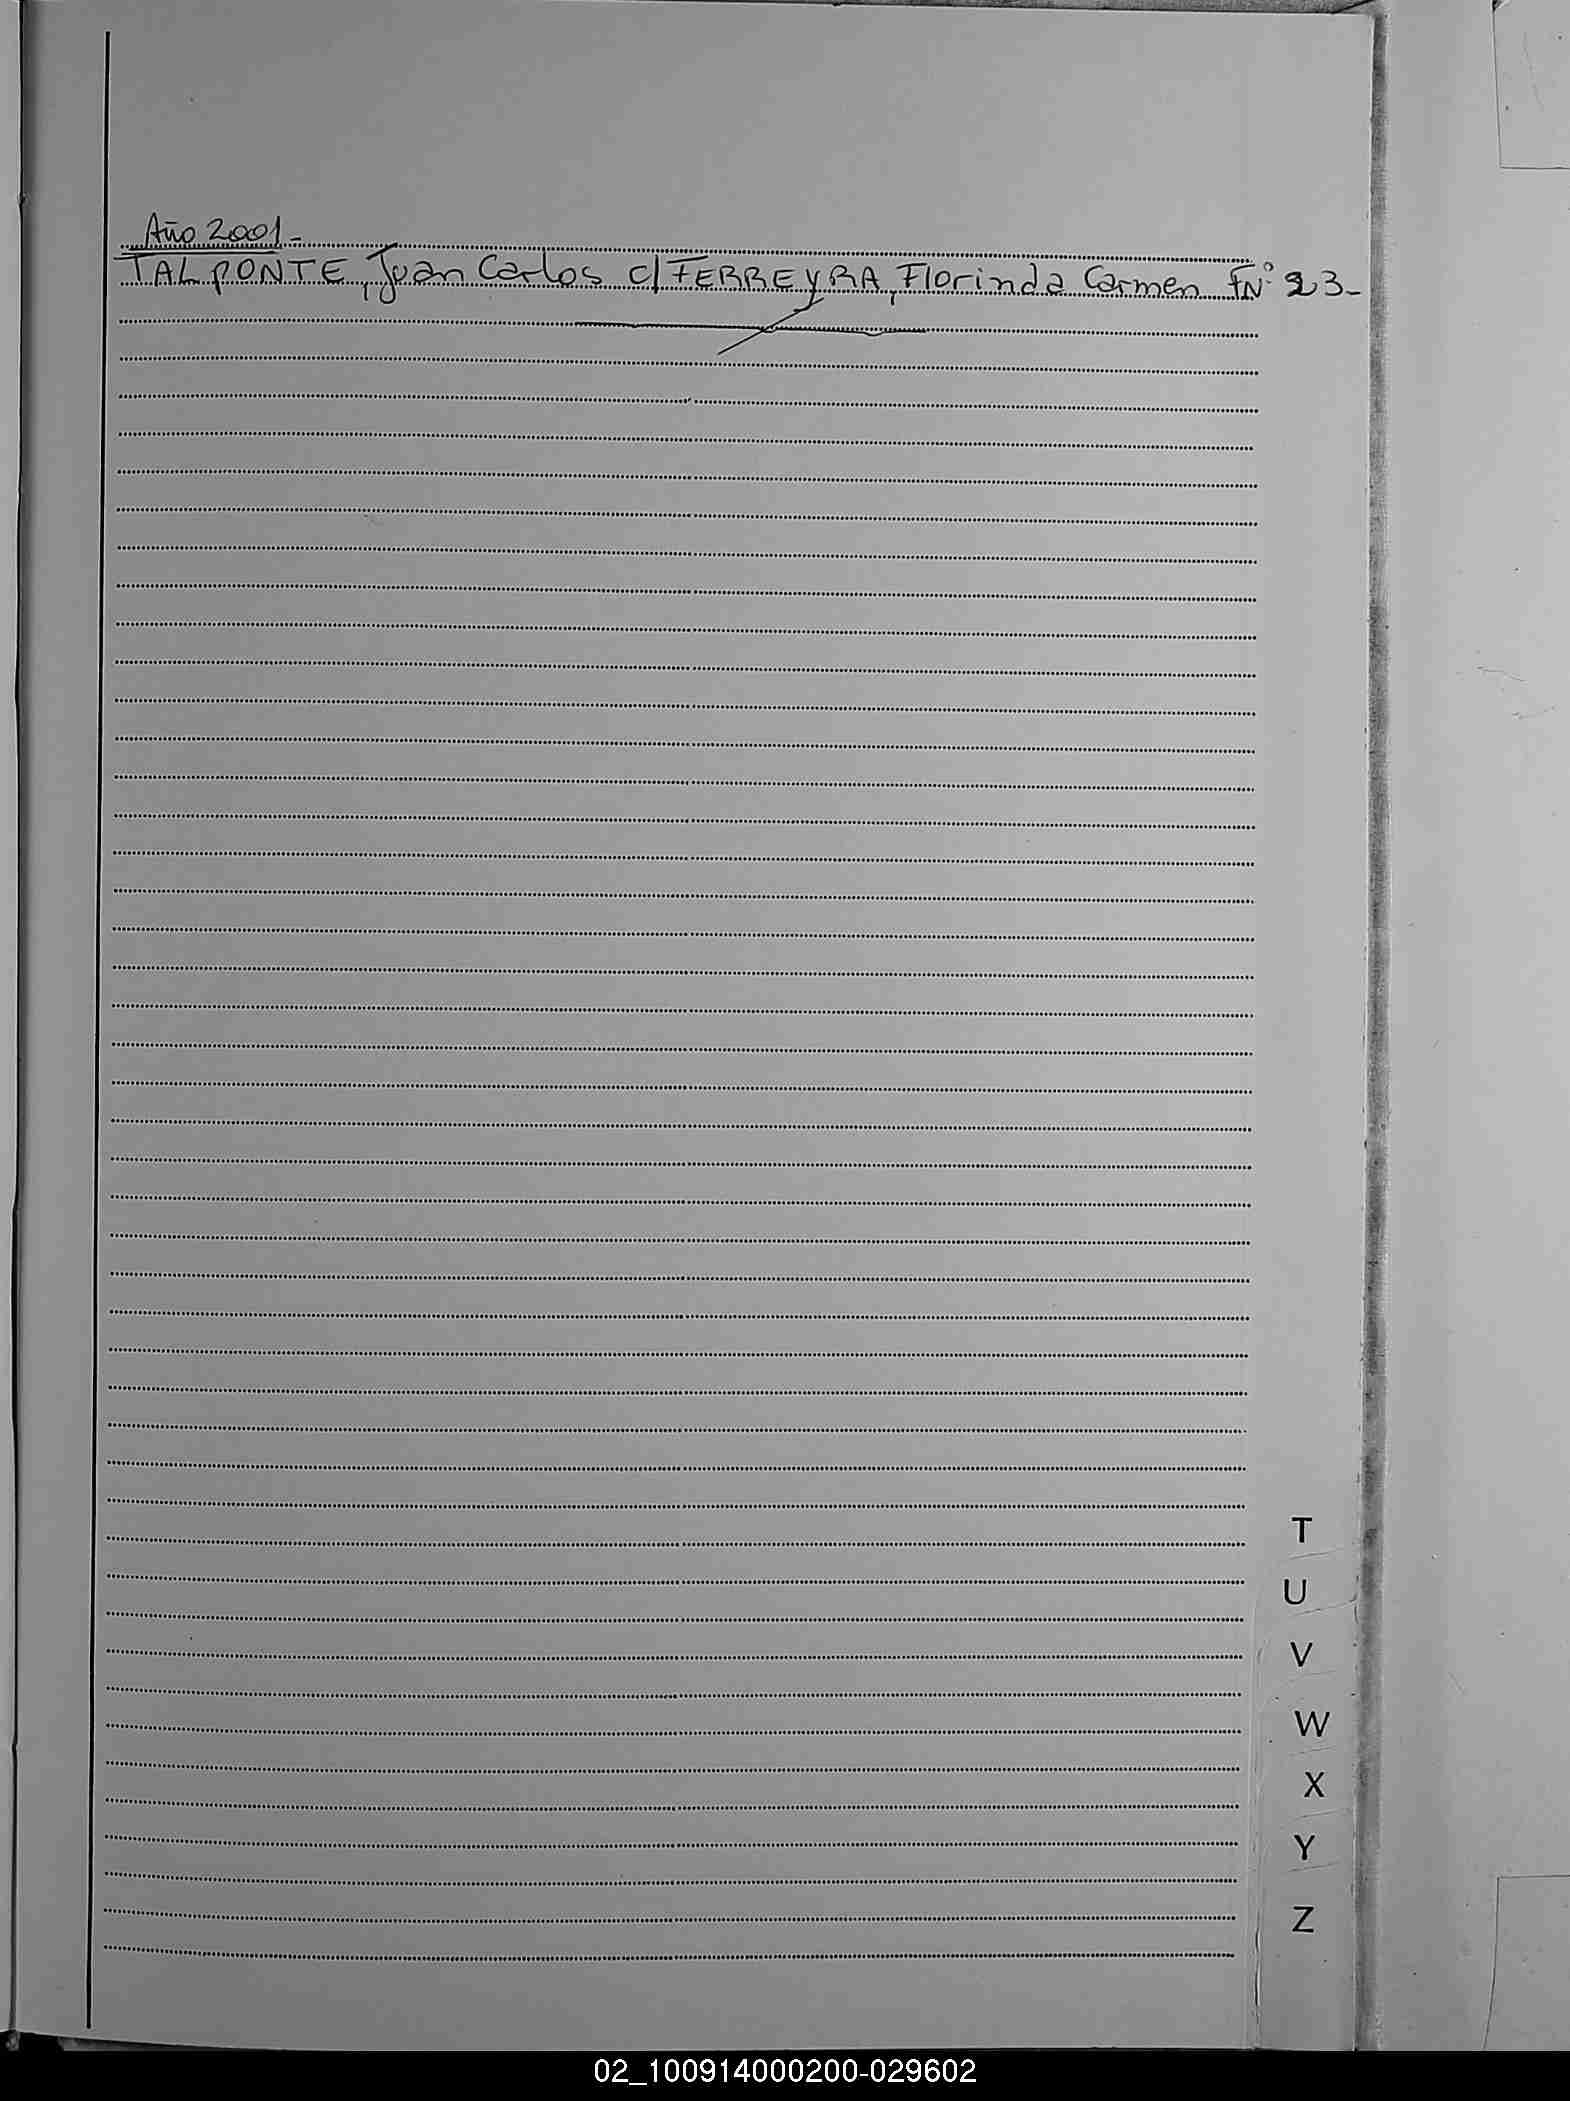 Año 2001-
TALPONTE, Juan Carlos c/ FERREYRA, Florinda Carmen FNº 23-
T
U
V
W
X
Y
Z
02_100914000200-029602